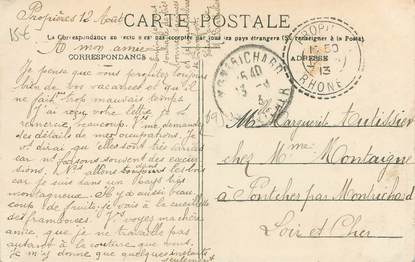 Propières 12 Août
15€
CARTE POSTALE
La Correspondance au recto n'est pas acceptée par tous les pays étrangers (Se renseigner à la poste)
CORRESPONDANCE
ADRESSE
A mon amie
Je pense que vous profitez toujours
bien de vos vacances et qu'il
ne fait trop mauvais temps
J'ai reçu votre lettre je
remercie beaucoup. Vous me demandez
des détails de mes occupations. Je
dirai qu'elles sont très
car nous faisons souvent des excur
sions. Nous allons toujours
car je suis dans un pays très
montagneux. Il y a aussi beau
coup de fruits, je vais à la cueillette
des framboises. Vous voyez ma chère
amie, que je ne travaille pas
autant à la couture que vous.
Je m'y donne que quelques instants
seulement
MONTRICHARD
PROPIÈRES
RHONE
13
Mlle Marguerite Autissier
chez Mme Montaigne
à Pontcher par Montrichard
Loir et Cher